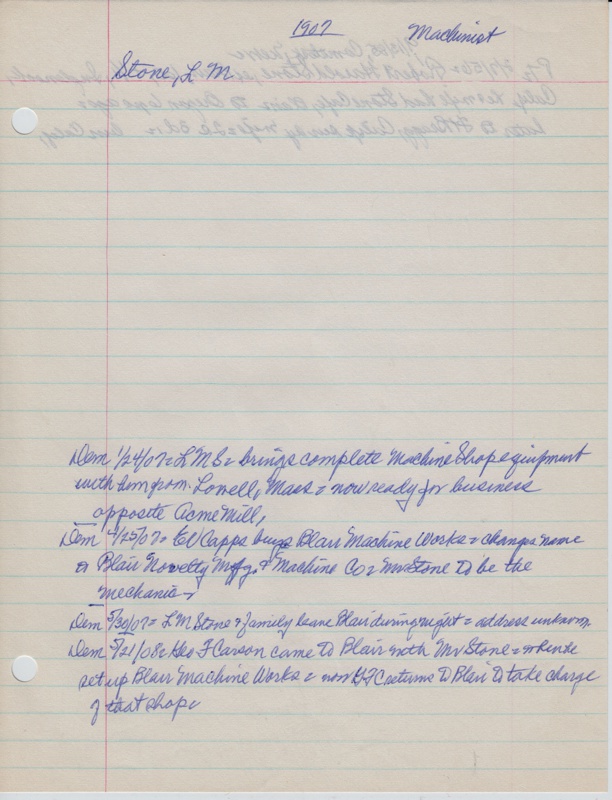 1907 Machinist
Stone, L M
Dem 1/24/07 = L M S = brings complete Machine Shop equipment
with him from Lowell, Mass = now ready for business
opposite Acme Mill,
Dem 4/25/07 = Ed Capps buys Blair Machine Works = changes name
to Blair Novelty Mfg. & Machine Co = Mr Stone to be the
mechanic,
Dem 5/30/07 = L M Stone & family leave Blair during night = address unknown.
Dem 5/21/08 = Geo F Carson came to Blair with Mr Stone = when he
set up Blair Machine Works = now GFC returns to Blair to take charge
of that shop